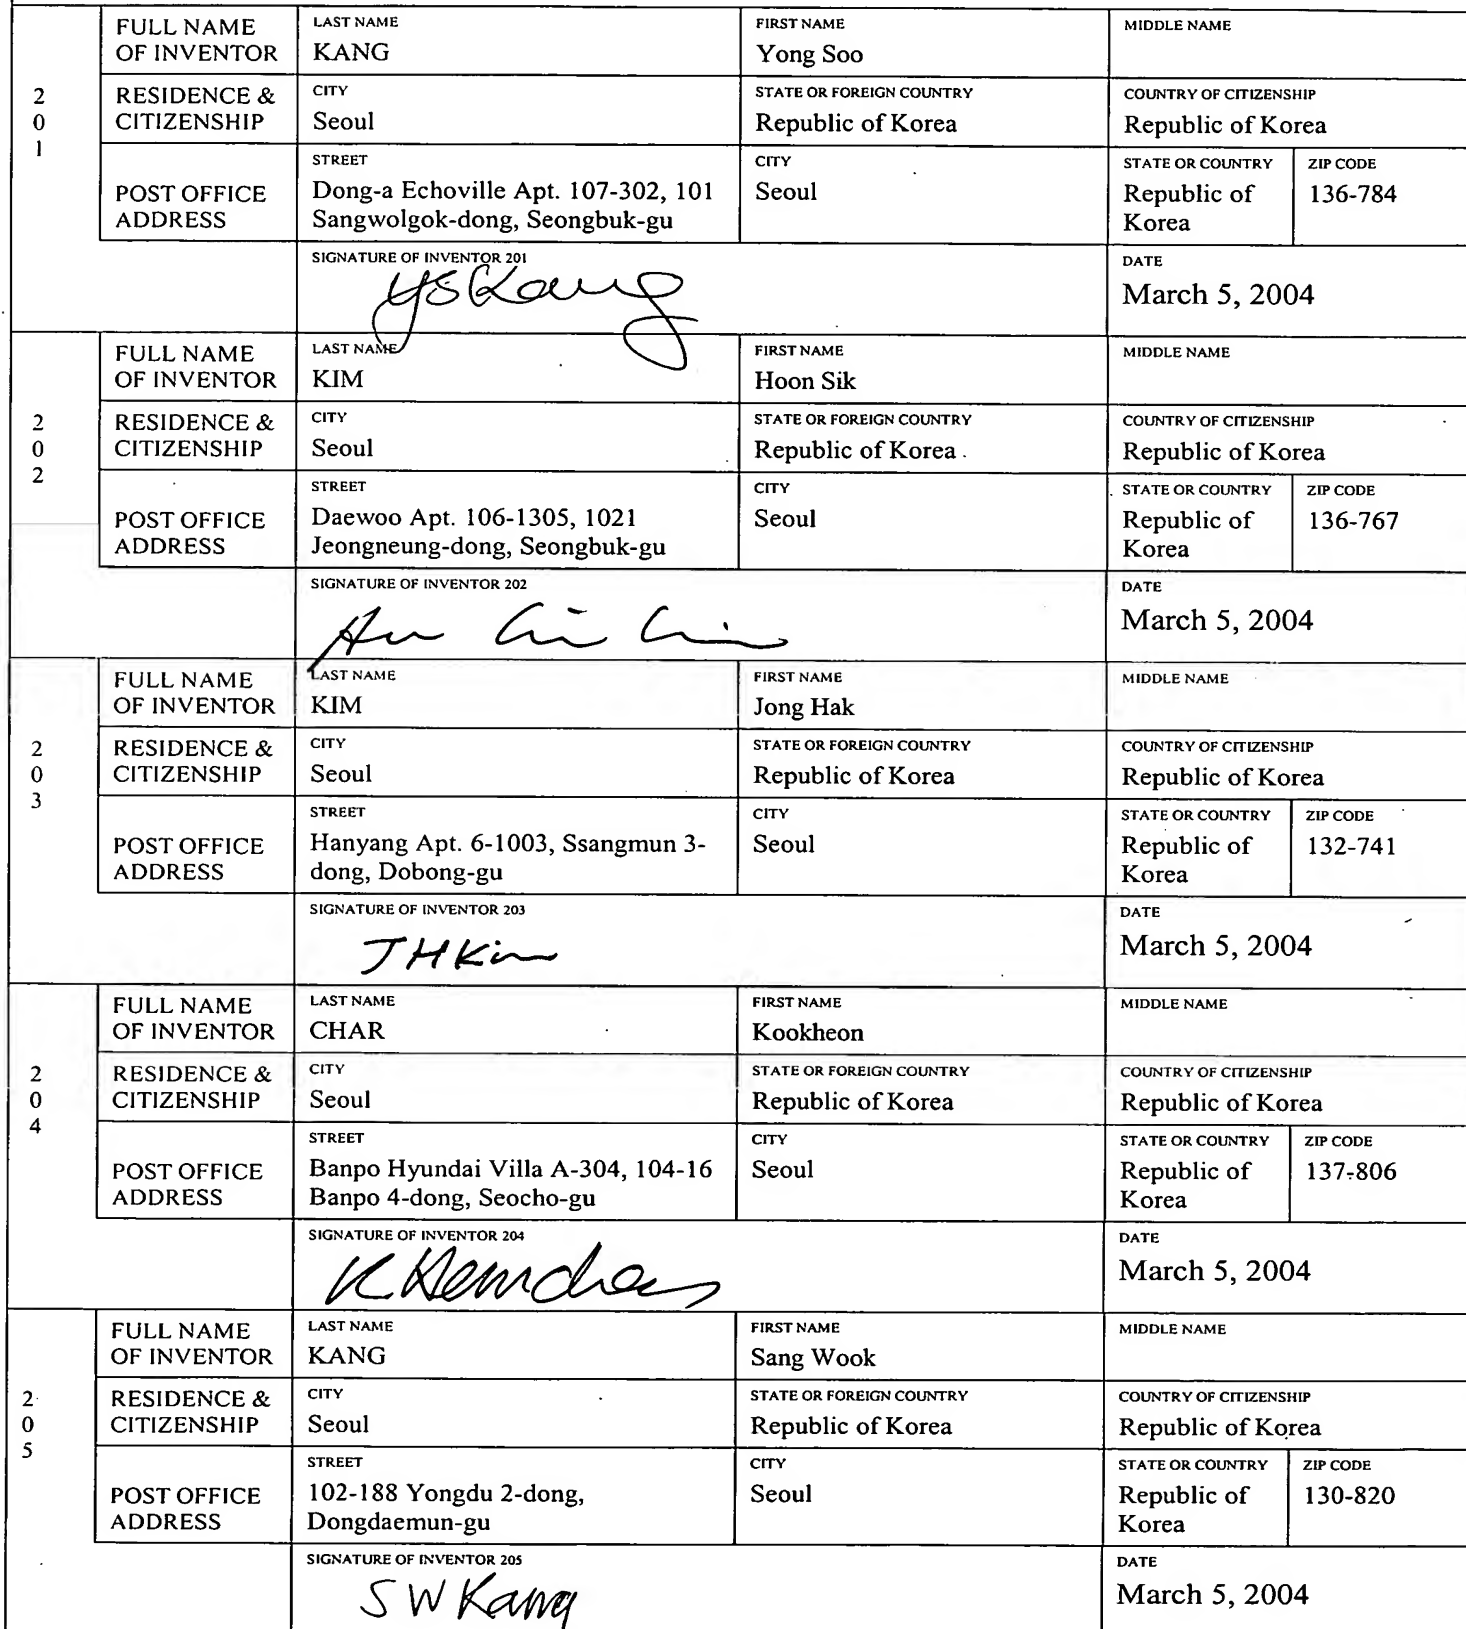 FULL NAME OF INVENTOR
LAST NAME
KANG
FIRST NAME
Yong Soo
MIDDLE NAME
201
RESIDENCE & CITIZENSHIP
CITY
Seoul
STATE OR FOREIGN COUNTRY
Republic of Korea
COUNTRY OF CITIZENSHIP
Republic of Korea
POST OFFICE ADDRESS
STREET
Dong-a Echoville Apt. 107-302, 101
Sangwolgok-dong, Seongbuk-gu
CITY
Seoul
STATE OR COUNTRY
Republic of
Korea
ZIP CODE
136-784
SIGNATURE OF INVENTOR 201
YSKang
DATE
March 5, 2004
FULL NAME OF INVENTOR
LAST NAME
KIM
FIRST NAME
Hoon Sik
MIDDLE NAME
202
RESIDENCE & CITIZENSHIP
CITY
Seoul
STATE OR FOREIGN COUNTRY
Republic of Korea
COUNTRY OF CITIZENSHIP
Republic of Korea
POST OFFICE ADDRESS
STREET
Daewoo Apt. 106-1305, 1021
Jeongneung-dong, Seongbuk-gu
CITY
Seoul
STATE OR COUNTRY
Republic of
Korea
ZIP CODE
136-767
SIGNATURE OF INVENTOR 202
DATE
March 5, 2004
FULL NAME OF INVENTOR
LAST NAME
KIM
FIRST NAME
Jong Hak
MIDDLE NAME
203
RESIDENCE & CITIZENSHIP
CITY
Seoul
STATE OR FOREIGN COUNTRY
Republic of Korea
COUNTRY OF CITIZENSHIP
Republic of Korea
POST OFFICE ADDRESS
STREET
Hanyang Apt. 6-1003, Ssangmun 3-
dong, Dobong-gu
CITY
Seoul
STATE OR COUNTRY
Republic of
Korea
ZIP CODE
132-741
SIGNATURE OF INVENTOR 203
JHKim
DATE
March 5, 2004
FULL NAME OF INVENTOR
LAST NAME
CHAR
FIRST NAME
Kookheon
MIDDLE NAME
204
RESIDENCE & CITIZENSHIP
CITY
Seoul
STATE OR FOREIGN COUNTRY
Republic of Korea
COUNTRY OF CITIZENSHIP
Republic of Korea
POST OFFICE ADDRESS
STREET
Banpo Hyundai Villa A-304, 104-16
Banpo 4-dong, Seocho-gu
CITY
Seoul
STATE OR COUNTRY
Republic of
Korea
ZIP CODE
137-806
SIGNATURE OF INVENTOR 204
DATE
March 5, 2004
FULL NAME OF INVENTOR
LAST NAME
KANG
FIRST NAME
Sang Wook
MIDDLE NAME
205
RESIDENCE & CITIZENSHIP
CITY
Seoul
STATE OR FOREIGN COUNTRY
Republic of Korea
COUNTRY OF CITIZENSHIP
Republic of Korea
POST OFFICE ADDRESS
STREET
102-188 Yongdu 2-dong,
Dongdaemun-gu
CITY
Seoul
STATE OR COUNTRY
Republic of
Korea
ZIP CODE
130-820
SIGNATURE OF INVENTOR 205
SW Kang
DATE
March 5, 2004